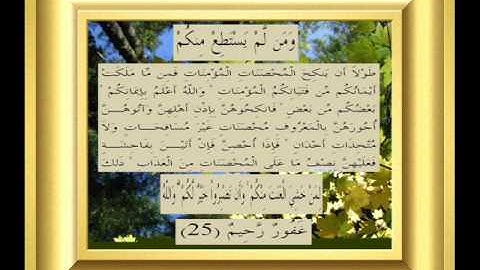 وَمَن لَّمْ يَسْتَطِعْ مِنكُمْ
طَوْلاً أَن يَنكِحَ الْمُحْصَنَاتِ الْمُؤْمِنَاتِ فَمِن مَّا مَلَكَتْ
أَيْمَانُكُم مِّن فَتَيَاتِكُمُ الْمُؤْمِنَاتِ ۚ وَاللَّهُ أَعْلَمُ بِإِيمَانِكُمْ ۚ
بَعْضُكُم مِّن بَعْضٍ ۚ فَانكِحُوهُنَّ بِإِذْنِ أَهْلِهِنَّ وَآتُوهُنَّ
أُجُورَهُنَّ بِالْمَعْرُوفِ مُحْصَنَاتٍ غَيْرَ مُسَافِحَاتٍ وَلَا
مُتَّخِذَاتِ أَخْدَانٍ ۚ فَإِذَا أُحْصِنَّ فَإِنْ أَتَيْنَ بِفَاحِشَةٍ
فَعَلَيْهِنَّ نِصْفُ مَا عَلَى الْمُحْصَنَاتِ مِنَ الْعَذَابِ ۚ ذَٰلِكَ
لِمَنْ خَشِيَ الْعَنَتَ مِنكُمْ ۚ وَأَن تَصْبِرُوا خَيْرٌ لَّكُمْ ۗ وَاللَّهُ
غَفُورٌ رَّحِيمٌ (25)